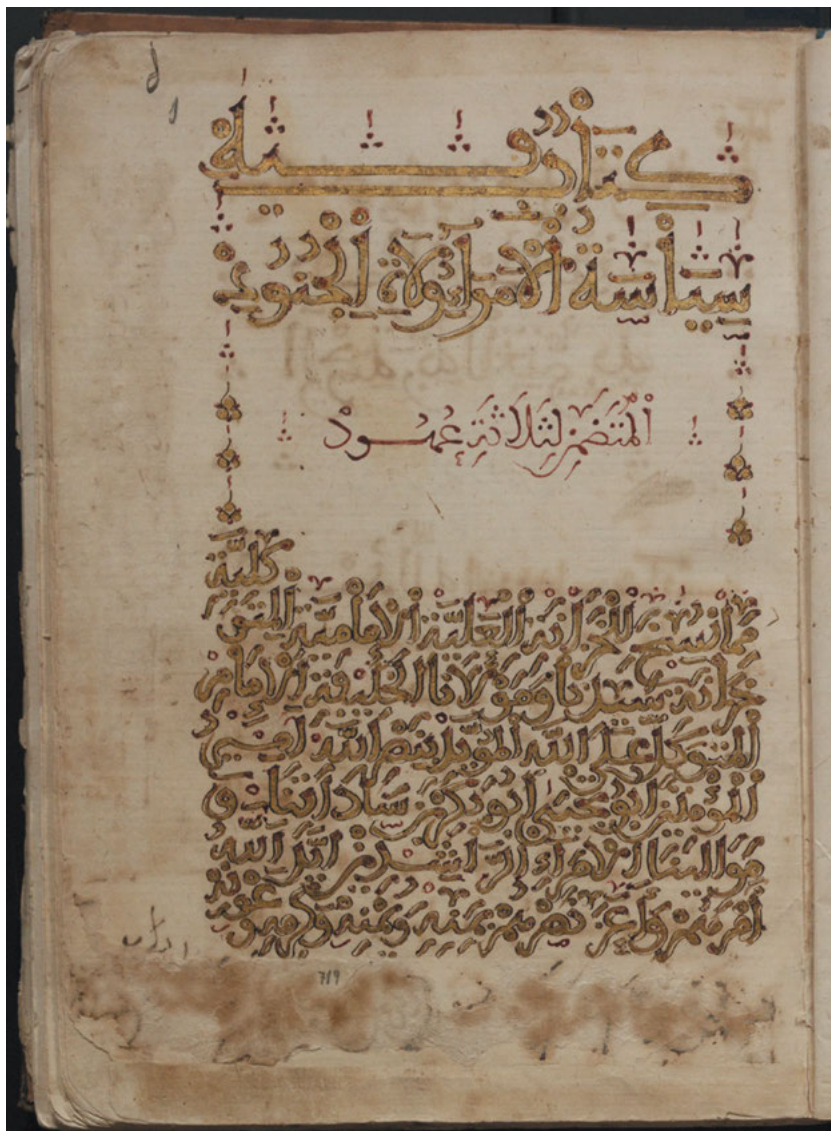 كتاب فيه
سياسة الامراء ولاة الجنود
المتضمن لثلاثة عهود
مما نسخ للخزانة العلية الإمامية المتو
كلية
خزانة سيدنا ومولانا الخليفة الإمام
المتوكل على الله المؤيد بنصر الله امير
المؤمنين ابو يحيى ابو بكر بن ساداتنا و
موالينا الامراء الراشدين ايد الله
امرهم واعز نصرهم بمنه ويمنه
719